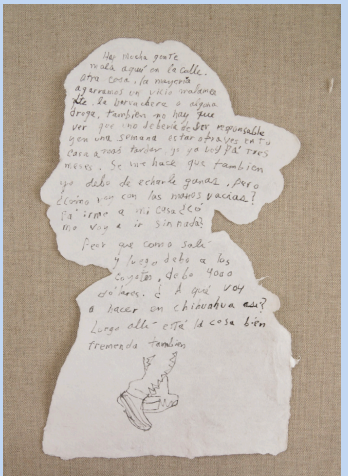 Hay mucha gente
mala aquí en la calle.
Otra cosa, la mayoría
agarramos un vicio
la a alguna
droga, también no hay que
ver que uno debería de ser responsable
y en una semana estar otra vez en tu
casa a todo tardar y yo voy pa' tres
meses. Se me hace que también
yo debo de echarle ganas, pero
¿cómo voy con las manos vacías?
pa' irme a mi casa ¿có
mo voy a ir sin nada?
Peor que como salí
y luego debo a los
coyotes, debo 4000
dólares. ¿A qué voy
a hacer en chihuahua
Luego allá está la cosa bien
tremenda también